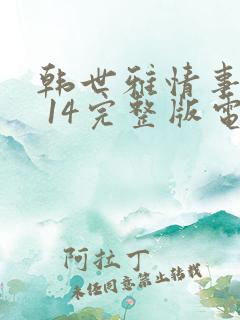 韩世雅情事
14完整版电
阿拉丁
未经同意禁止转载